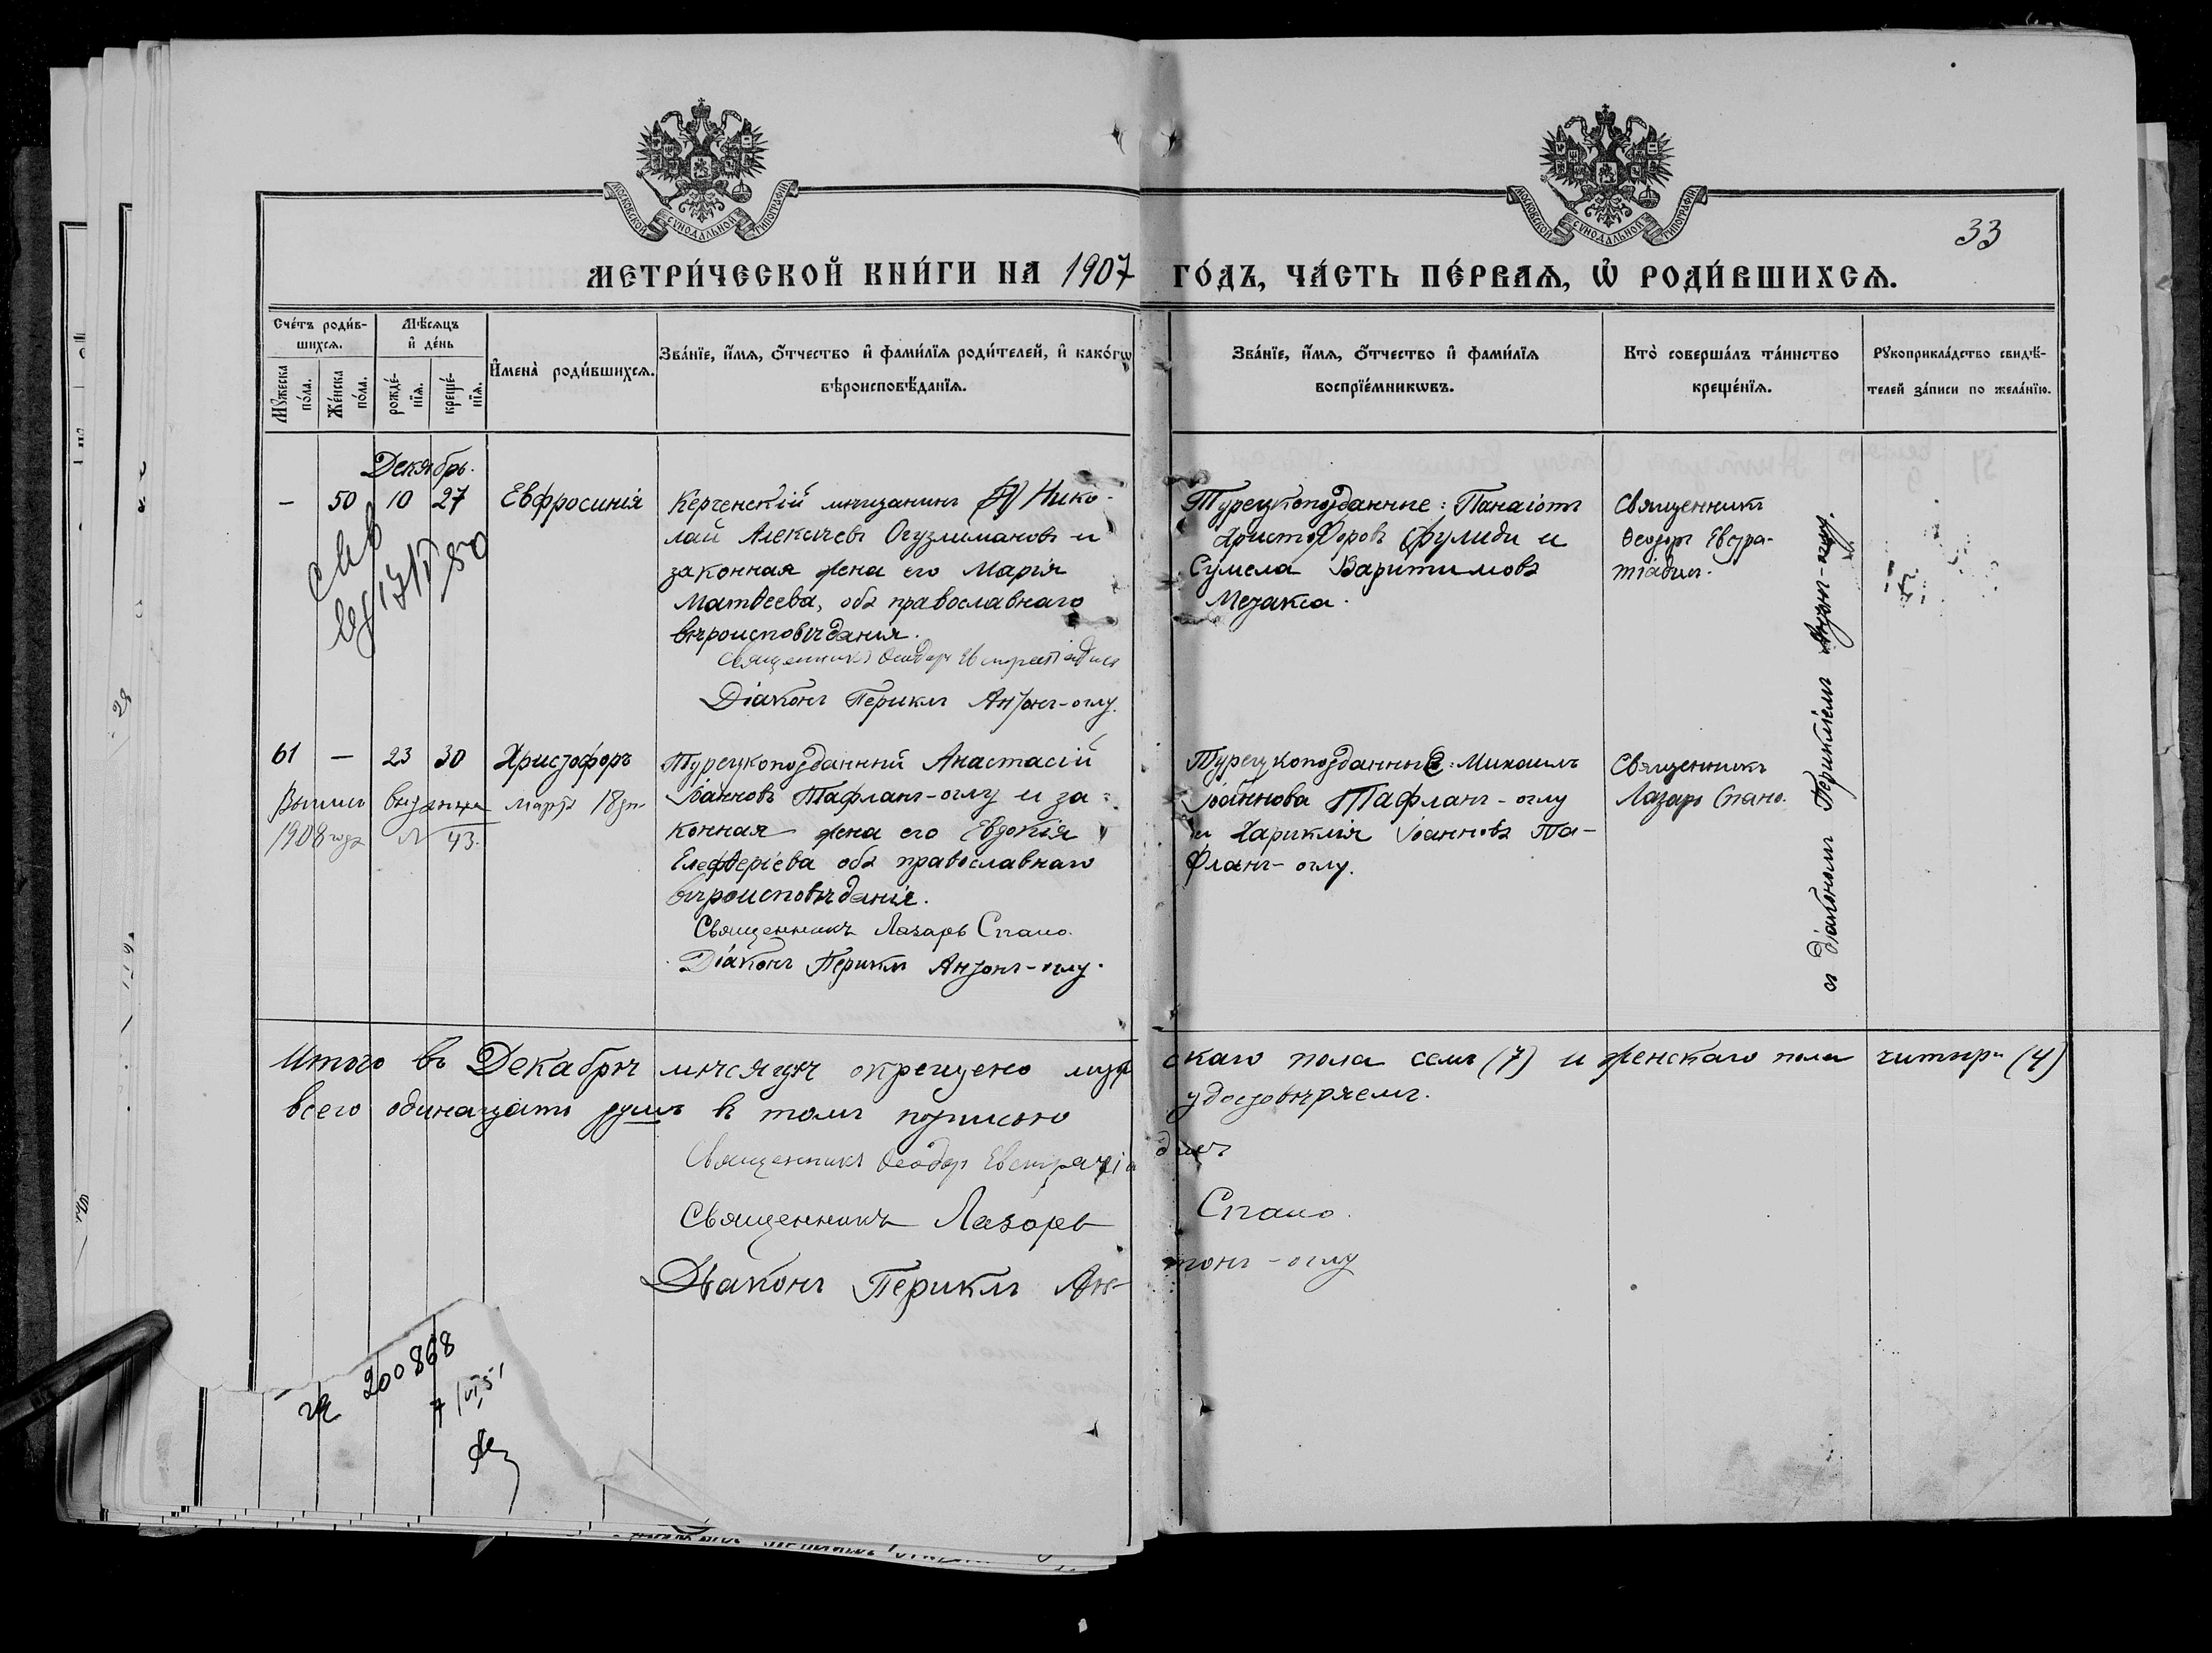 МОСКОВСКОЙ СѴНОДАЛЬНОЙ ТИПОГРАФІИ
МОСКОВСКОЙ СѴНОДАЛЬНОЙ ТИПОГРАФІИ
33
МЕТРИ́ЧЕСКОЙ КНИ́ГИ НА 1907 ГО́ДЪ, ЧА́СТЬ ПЕ́РВАѦ, Ѡ҆ РОДИ́ВШИХСѦ.
Сче́тъ роди́в-
шихсѧ.
Мѣ́сѧцъ
и҆ де́нь
Мꙋ́жеска по́ла.
Же́нска по́ла.
рожде́-
нїѧ.
креще́-
нїѧ.
И҆мена̀ роди́вшихсѧ.
Зва́нїе, и҆́мѧ, ѻ҆́тчество и҆ фами́лїѧ роди́телей, и҆ како́гѡ
вѣроисповѣ́данїѧ.
Зва́нїе, и҆́мѧ, ѻ҆́тчество и҆ фами́лїѧ
воспрїе́мникѡвъ.
Кто̀ соверша́лъ та́инство
креще́нїѧ.
Рꙋкоприкла́дство свидѣ́-
телей за́писи по жела́нїю.
Декабрь.
— 50 10 27 Евфросинія
Керченскій мѣщанинъ Нико-
лай Алексѣевъ Огузлимановъ и
законная жена его Марія
Матѳеева, оба православнаго
вѣроисповѣданія.
Священникъ Ѳеодоръ Евстратіадисъ
Діаконъ Периклъ Антонъ-оглу.
Турецкоподданные: Панаіотъ
Христофоровъ Фулиди и
Сумела Варитимова
Метакса.
Священникъ
Ѳеодоръ Евстра-
тіадисъ.
61 — 23 30 Христофоръ
Выпись выдана марта 18 дн.
1908 года № 43.
Турецкоподданный Анастасій
Іоанновъ Тафланъ-оглу и за-
конная жена его Евдокія
Елефѳеріева оба православнаго
вѣроисповѣданія.
Священникъ Лазарь Спано.
Діаконъ Периклъ Антонъ-оглу.
Турецкоподданные: Михаилъ
Іоаннова Тафланъ-оглу
и Хариклія Іоаннова Та-
фланъ-оглу.
Священникъ
Лазарь Спано.
съ діакономъ Перикліемъ Антонъ-оглу.
Итого въ Декабрѣ мѣсяцѣ окрещено мужскаго пола семь (7) и женскаго пола читыри (4)
всего одинадцать душъ въ томъ подписью удостовѣряемъ.
Священникъ Ѳеодоръ Евстратіадисъ
Священникъ Лазарь Спано.
Діаконъ Периклъ Антонъ-оглу
200868